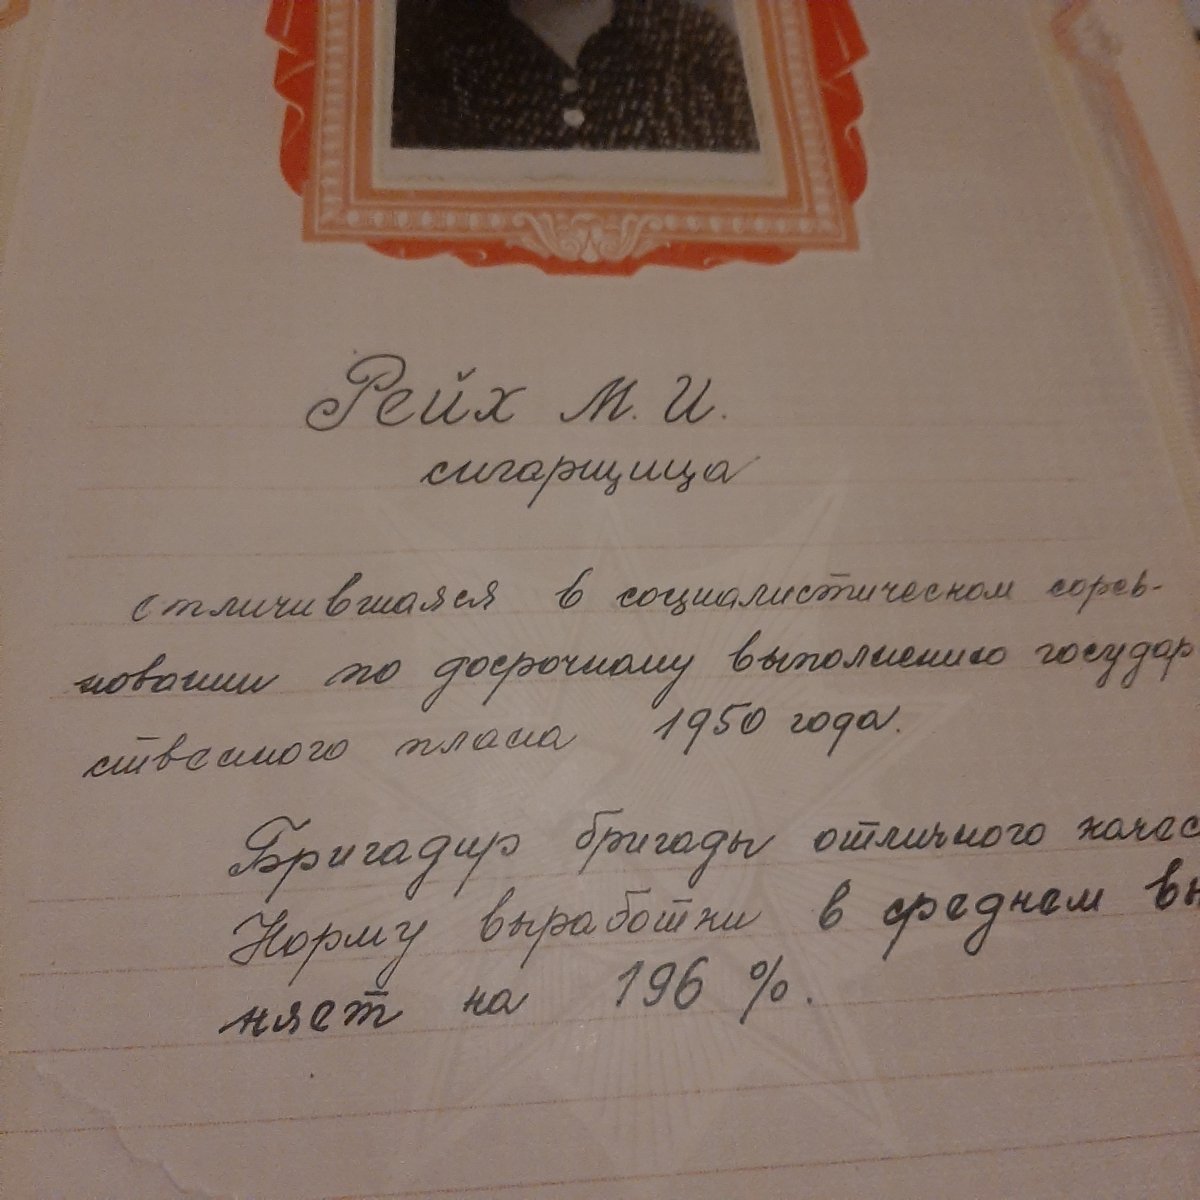 Рейх М. И.
сигарщица
отличившаяся в социалистическом сорев-
новании по досрочному выполнению государ
ственного плана 1950 года.
Бригадир бригады отличного качес
Норму выработки в среднем вы
няет на 196 %.